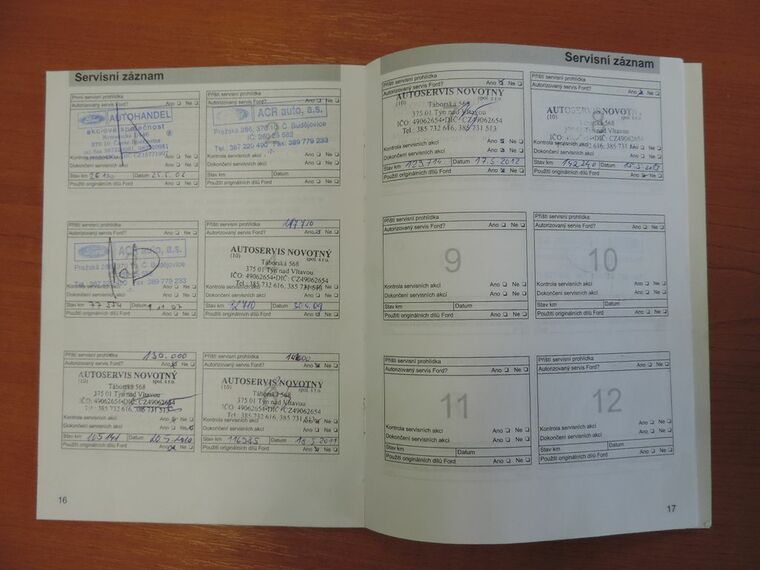 Servisní záznam
První servisní prohlídka
Autorizovaný servis Ford? Ano Ne
AUTOHANDEL
akciová společnost
Kontrola servisních akcí
Dokončení servisních akcí
Stav km Datum 25.5.02
Použití originálních dílů Ford Ano Ne
Příští servisní prohlídka
Autorizovaný servis Ford? Ano Ne
ACR auto, a.s.
Pražská 286, 370 10 Č. Budějovice
Tel. 387 220 490 Fax: 389 779 233
Kontrola servisních akcí Ano Ne
Dokončení servisních akcí Ano Ne
Stav km Datum
Použití originálních dílů Ford Ano Ne
Příští servisní prohlídka
Autorizovaný servis Ford? Ano Ne
ACR auto, a.s.
Kontrola servisních akcí Ano Ne
Dokončení servisních akcí Ano Ne
Stav km Datum
Použití originálních dílů Ford Ano Ne
Příští servisní prohlídka
Autorizovaný servis Ford? Ano Ne
AUTOSERVIS NOVOTNÝ
(10) spol. s r.o.
Táborská 568
375 01 Týn nad Vltavou
IČO: 49062654•DIČ: CZ49062654
Tel.: 385 732 616, 385 731 513
Kontrola servisních akcí
Dokončení servisních akcí Ano Ne
Stav km Datum
Použití originálních dílů Ford Ano Ne
Příští servisní prohlídka 130.000
Autorizovaný servis Ford? Ano Ne
AUTOSERVIS NOVOTNÝ
(10) spol. s r.o.
Táborská 568
375 01 Týn nad Vltavou
IČO: 49062654•DIČ: CZ49062654
Tel.: 385 732 616, 385 731 513
Kontrola servisních akcí Ano Ne
Dokončení servisních akcí Ano Ne
Stav km Datum
Použití originálních dílů Ford Ano Ne
Příští servisní prohlídka
Autorizovaný servis Ford? Ano Ne
AUTOSERVIS NOVOTNÝ
(10) spol. s r.o.
Táborská 568
375 01 Týn nad Vltavou
IČO: 49062654•DIČ: CZ49062654
Tel.: 385 732 616, 385 731 513
Kontrola servisních akcí Ano Ne
Dokončení servisních akcí Ano Ne
Stav km Datum 18.5.2011
Použití originálních dílů Ford Ano Ne
16
Servisní záznam
Příští servisní prohlídka
Autorizovaný servis Ford? Ano Ne
AUTOSERVIS NOVOTNÝ
(10) spol. s r.o.
Táborská 568
375 01 Týn nad Vltavou
IČO: 49062654•DIČ: CZ49062654
Tel.: 385 732 616, 385 731 513
Kontrola servisních akcí Ano Ne
Dokončení servisních akcí Ano Ne
Stav km Datum 17.5.2012
Použití originálních dílů Ford Ano Ne
Příští servisní prohlídka
Autorizovaný servis Ford? Ano Ne
AUTOSERVIS NOVOTNÝ
(10)
Táborská 568
375 01 Týn nad Vltavou
Kontrola servisních akcí Ano Ne
Dokončení servisních akcí Ano Ne
Stav km Datum
Použití originálních dílů Ford Ano Ne
Příští servisní prohlídka
Autorizovaný servis Ford? Ano Ne
9
Kontrola servisních akcí Ano Ne
Dokončení servisních akcí Ano Ne
Stav km Datum
Použití originálních dílů Ford Ano Ne
Příští servisní prohlídka
Autorizovaný servis Ford? Ano Ne
10
Kontrola servisních akcí Ano Ne
Dokončení servisních akcí Ano Ne
Stav km Datum
Použití originálních dílů Ford Ano Ne
Příští servisní prohlídka
Autorizovaný servis Ford? Ano Ne
11
Kontrola servisních akcí Ano Ne
Dokončení servisních akcí Ano Ne
Stav km Datum
Použití originálních dílů Ford Ano Ne
Příští servisní prohlídka
Autorizovaný servis Ford? Ano Ne
12
Kontrola servisních akcí Ano Ne
Dokončení servisních akcí Ano Ne
Stav km Datum
Použití originálních dílů Ford Ano Ne
17